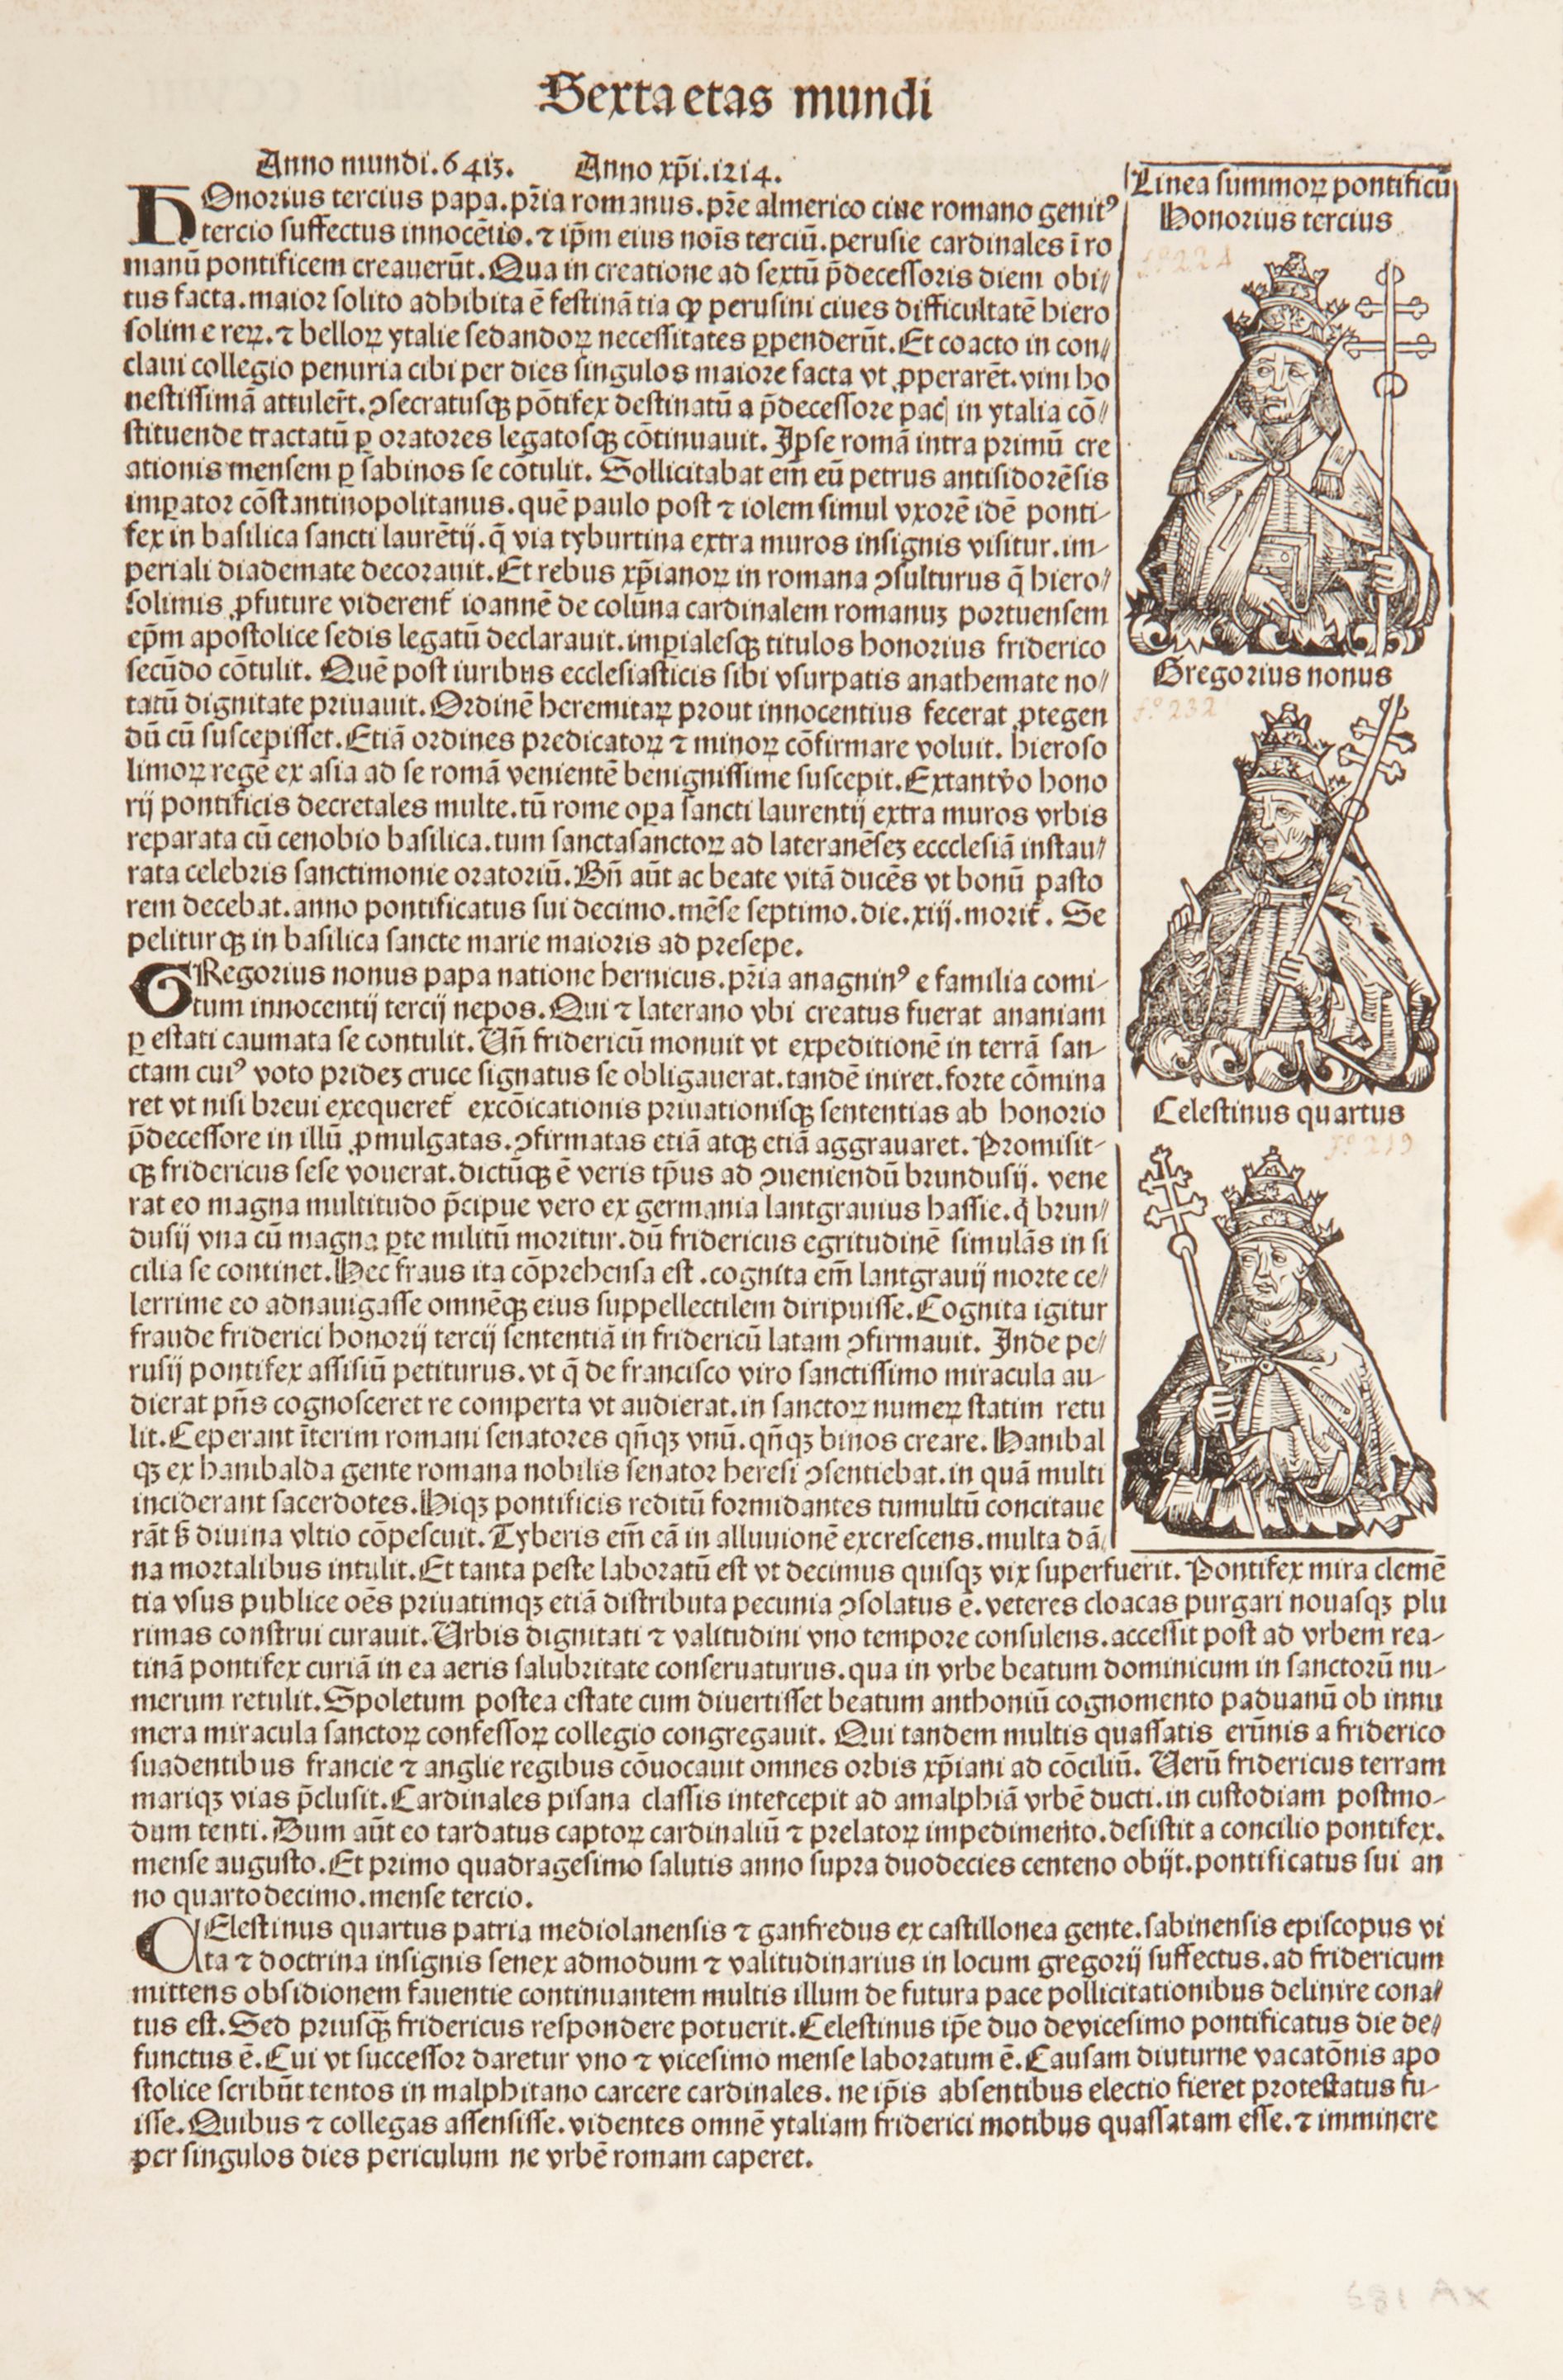 Sexta etas mundi
Anno mundi.6413. Anno xp̄i.1214.
HOnorius tercius papa.pr̄ia romanus.pr̄e almerico ciue romano genitꝰ
tercio suffectus innocētio.⁊ ip̄m eius noīs terciū.perusie cardinales ī ro
manū pontificem creauerūt.Qua in creatione ad sextū p̄decessoris diem obi⸗
tus facta.maior solito adhibita ē festinātia qꝫ perusini ciues difficultatē hiero
solime reꝝ.⁊ belloꝝ ytalie sedandoꝝ necessitates ꝑpenderūt.Et coacto in con⸗
claui collegio penuria cibi per dies singulos maiore facta vt ꝓperarēt.vim ho
nestissimā attuler̄t.ꝯsecratusqꝫ pōtifex destinatū a p̄decessore pac̨ in ytalia cō⸗
stituende tractatū ꝑ oratores legatosqꝫ cōtinuauit. Ipse romā intra primū cre
ationis mensem ꝑ sabinos se cōtulit. Sollicitabat em̄ eū petrus antisidorēsis
imꝑator cōstantinopolitanus.quē paulo post ⁊ iolem simul vxorē idē ponti⸗
fex in basilica sancti laurētij.q̄ via tyburtina extra muros insignis visitur.im⸗
periali diademate decorauit.Et rebus xp̄ianoꝝ in romana ꝯsulturus q̄ hiero⸗
solimis ꝓfuture viderent̄ ioannē de colūna cardinalem romanuꝫ portuensem
ep̄m apostolice sedis legatū declarauit.imꝑialesqꝫ titulos honorius friderico
secūdo cōtulit. Quē post iuribus ecclesiasticis sibi vsurpatis anathemate no⸗
tatū dignitate priuauit.Ordinē heremitaꝝ prout innocentius fecerat ꝓtegen
dū cū suscepisset.Etiā ordines predicatoꝝ ⁊ minoꝝ cōfirmare voluit. hieroso
limoꝝ regē ex asia ad se romā venientē benignissime suscepit.Extant v̄o hono
rij pontificis decretales multe.tū rome oꝑa sancti laurentij extra muros vrbis
reparata cū cenobio basilica.tum sanctasanctoꝝ ad lateranēseꝫ eccclesiā instau⸗
rata celebris sanctimonie oratoriū.Bn̄ aūt ac beate vitā ducēs vt bonū pasto
rem decebat.anno pontificatus sui decimo.mēse septimo.die.xiij.morit̄. Se
peliturqꝫ in basilica sancte marie maioris ad presepe.
GRegorius nonus papa natione hernicus.pr̄ia anagninꝰ e familia comi⸗
tum innocentij tercij nepos.Qui ⁊ laterano vbi creatus fuerat ananiam
ꝑ estati caumata se contulit.Un̄ fridericū monuit vt expeditionē in terrā san⸗
ctam cuiꝰ voto prideꝫ cruce signatus se obligauerat.tandē iniret.forte cōmina
ret vt nisi breui exequeret̄ excōicationis priuationisqꝫ sententias ab honorio
p̄decessore in illū ꝓmulgatas.ꝯfirmatas etiā atqꝫ etiā aggrauaret. Promisit⸗
qꝫ fridericus sese vouerat.dictūqꝫ ē veris tp̄us ad ꝯueniendū brundusij. vene
rat eo magna multitudo p̄cipue vero ex germania lantgrauius hassie.q̇ brun⸗
dusij vna cū magna ꝑte militū moritur.dū fridericus egritudinē simulās in si
cilia se continet.Hec fraus ita cōprehensa est.cognita em̄ lantgrauij morte ce⸗
lerrime eo adnauigasse omnēqꝫ eius suppellectilem diripuisse.Cognita igitur
fraude friderici honorij tercij sententiā in fridericū latam ꝯfirmauit. Inde pe⸗
rusij pontifex assisiū petiturus.vt q̄ de francisco viro sanctissimo miracula au⸗
dierat pn̄s cognosceret re comperta vt audierat.in sanctoꝝ numeꝝ statim retu
lit.Ceperant īterim romani senatores qn̄qꝫ vnū.qn̄qꝫ binos creare.Hanibal
qꝫ ex hanibalda gente romana nobilis senator heresi ꝯsentiebat.in quā multi
inciderant sacerdotes.Hiqꝫ pontificis reditū formidantes tumultū concitaue
rāt s̄ diuina vltio cōpescuit.Tyberis em̄ eā in alluuionē excrescens.multa dā⸗
na mortalibus intulit.Et tanta peste laboratū est vt decimus quisqꝫ vix superfuerit. Pontifex mira clemē
tia vsus publice oēs priuatimqꝫ etiā distributa pecunia ꝯsolatus ē.veteres cloacas purgari nouasqꝫ plu
rimas construi curauit.Urbis dignitati ⁊ valitudini vno tempore consulens.accessit post ad vrbem rea⸗
tinā pontifex curiā in ea aeris salubritate conseruaturus.qua in vrbe beatum dominicum in sanctorū nu⸗
merum retulit.Spoletum postea estate cum diuertisset beatum anthoniū cognomento paduanū ob innu
mera miracula sanctoꝝ confessoꝝ collegio congregauit. Qui tandem multis quassatis erūnis a friderico
suadentibus francie ⁊ anglie regibus cōuocauit omnes orbis xp̄iani ad cōciliū. Uerū fridericus terram
mariqꝫ vias p̄clusit.Cardinales pisana classis intercepit ad amalphiā vrbē ducti.in custodiam postmo⸗
dum tenti.Dum aūt eo tardatus captoꝝ cardinaliū ⁊ prelatoꝝ impedimento.desistit a concilio pontifex.
mense augusto.Et primo quadragesimo salutis anno supra duodecies centeno obijt.pontificatus sui an
no quartodecimo.mense tercio.
CElestinus quartus patria mediolanensis ⁊ ganfredus ex castillonea gente.sabinensis episcopus vi
ta ⁊ doctrina insignis senex admodum ⁊ valitudinarius in locum gregorij suffectus.ad fridericum
mittens obsidionem fauentie continuantem multis illum de futura pace pollicitationibus delinire cona⸗
tus est.Sed priusqꝫ̄ fridericus respondere potuerit.Celestinus ip̄e duodevicesimo pontificatus die de⸗
functus ē.Cui vt successor daretur vno ⁊ vicesimo mense laboratum ē.Causam diuturne vacatōnis apo
stolice scribūt tentos in malphitano carcere cardinales.ne ip̄is absentibus electio fieret protestatus fu⸗
isse.Quibus ⁊ collegas assensisse.videntes omnē ytaliam friderici motibus quassatam esse.⁊ imminere
per singulos dies periculum ne vrbē romam caperet.
Linea summoꝝ pontificū
Honorius tercius
fº 221
Gregorius nonus
fº 232
Celestinus quartus
fº 219